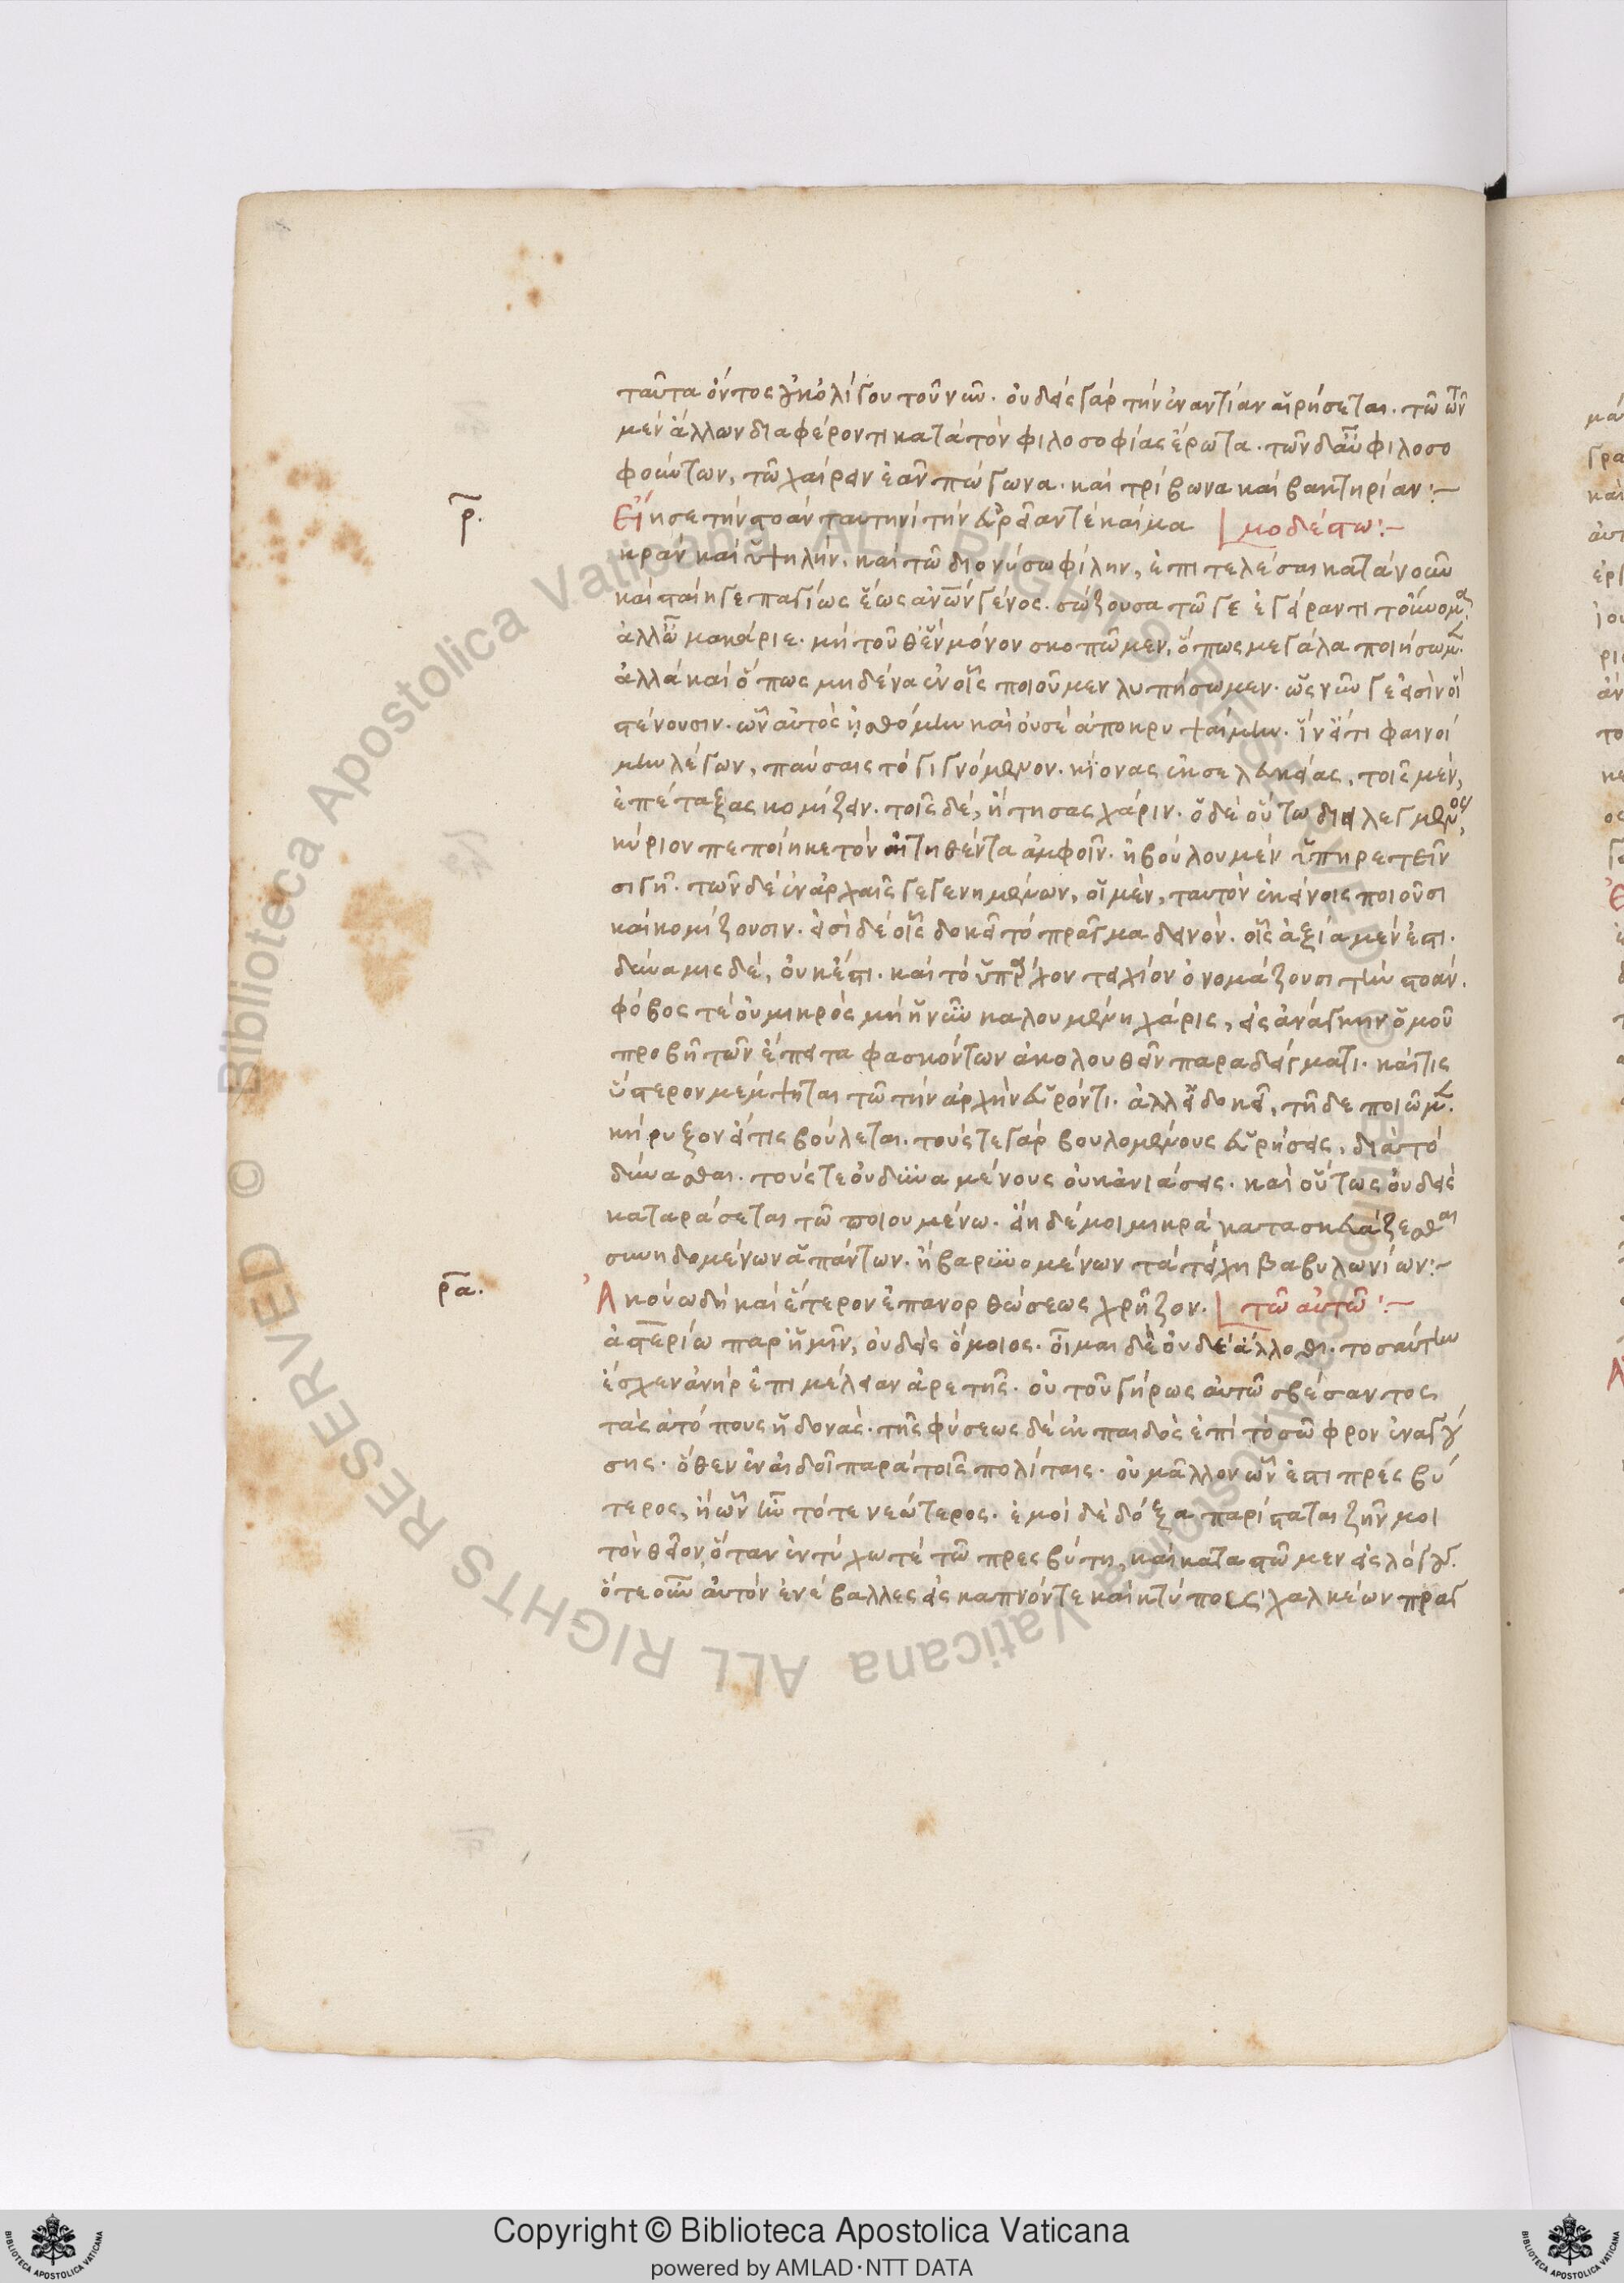 ταῦτα ὄντος ἐκ ὀλίγου τοῦ νῦν. οὐδεὶς γὰρ τὴν ἐναντίαν αἱρήσεται. τῶ τῶν
μὲν ἄλλων διαφέροντι κατὰ τὸν φιλοσοφίας ἔρωτα. τῶν δ' αὖ φιλοσο
φούντων, τῶ χαίρειν ἐᾶν πώγωνα. καὶ τρίβωνα καὶ βακτηρίαν:–
ρ.
Εἴη σε τὴν στοὰν ταυτηνὶ τὴν εὐρεῖάν τε καὶ μα μοδέστω:–
κρὰν καὶ ὑψηλήν. καὶ τῶ διονύσω φίλην, ἐπιτελέσαι κατὰ νοῦν
καὶ σταίη γε παγίως ἕως ἀνων γένος. σώζουσα τῶ γε ἐγείραντι τοὔνομα.
ἀλλ' ὦ μακάριε. μὴ τοῦθ' ἓν μόνον σκοπῶμεν, ὅπως μεγάλα ποιήσωμεν.
ἀλλὰ καὶ ὅπως μηδένα ἐν οἷς ποιοῦμεν λυπήσωμεν. ὡς νῦν γε εἰσὶν οἳ
στένουσιν. ὧν αὐτὸς ἠσθόμην καὶ οὐ σὲ ἀποκρυψαίμην. ἵν' εἴ τι φαινοί
μην λέγων, παύσαις τὸ γιγνόμενον. κίονας ἐκ σελευκείας, τοῖς μὲν,
ἐπέταξας κομίζειν. τοῖς δὲ, ἤτησας χάριν. ὁ δὲ οὕτω διειλεγμένος,
κύριον πεποίηκε τὸν αἰτηθέντα ἀμφοῖν. ἢ βούλου μὲν ὑπηρετεῖν
σιγῆ. τῶν δὲ ἐν ἀρχαῖς γεγενημένων, οἱ μὲν, ταυτὸν ἐκείνοις ποιοῦσι
καὶ κομίζουσιν. εἰσὶ δὲ οἷς δοκεῖ τὸ πρᾶγμα δεινόν. οἷς ἀξία μὲν ἔστι.
δύναμις δὲ, οὐκ ἔστι. καὶ τὸ ὑπάρχον τειχίον ὀνομάζουσι τὴν στοάν.
φόβος τὲ οὐ μικρὸς μὴ ἡ νῦν καλουμένη χάρις, εἰς ἀνάγκην ὁμοῦ
προβῆ τῶν ἔπειτα φασκόντων ἀκολουθεῖν παραδείγματι. καί τις
ὕστερον μέμψηται τῶ τὴν ἀρχὴν εὑρόντι. ἀλλ' εἰ δοκεῖ, τῆδε ποιῶμεν.
κήρυξον εἴ τις βούλεται. τούς τε γὰρ βουλομένους εὑρήσεις, διὰ τὸ
δύνασθαι. τούς τε οὐ δυναμένους οὐκ ἀνιάσεις. καὶ οὕτως οὐδεὶς
καταράσεται τῶ ποιουμένω. εἴη δέ μοι μικρὰ κατασκευάζεσθαι
συνηδομένων ἁπάντων. ἢ βαρυνομένων τὰ τείχη βαβυλωνίων:–
ρα.
Ἀκούω δὴ καὶ ἕτερον ἐπανορθώσεως χρῆζον. τῶ αὐτῶ:–
ἀστερίω παρ' ἡμῖν, οὐδεὶς ὅμοιος. οἶμαι δὲ οὐδὲ ἄλλοθι. τοσαύτην
ἔσχεν ἀνὴρ ἐπιμέλειαν ἀρετῆς. οὐ τοῦ γήρως αὐτῶ σβέσαντος
τὰς ἀτόπους ἡδονὰς. τῆς φύσεως δὲ ἐκ παιδὸς ἐπὶ τὸ σῶφρον ἐναγού
σης. ὅθεν ἐν αἰδοῖ παρὰ τοῖς πολίταις. οὐ μᾶλλον ὧν ἐστι πρεσβύ
τερος, ἢ ὧν ἦν τότε νεώτερος. ἐμοὶ δὲ δόξα παρίσταται ζῆν μοι
τὸν θεῖον, ὅταν ἐντύχω τὲ τῶ πρεσβύτη, καὶ καταστῶμεν εἰς λόγους.
ὅτε οὖν αὐτὸν ἐνέβαλλες εἰς καπνόν τε καὶ κτύπους χαλκέων πραγ
© Biblioteca Apostolica Vaticana ALL RIGHTS RESERVED
Copyright © Biblioteca Apostolica Vaticana
powered by AMLAD·NTT DATA